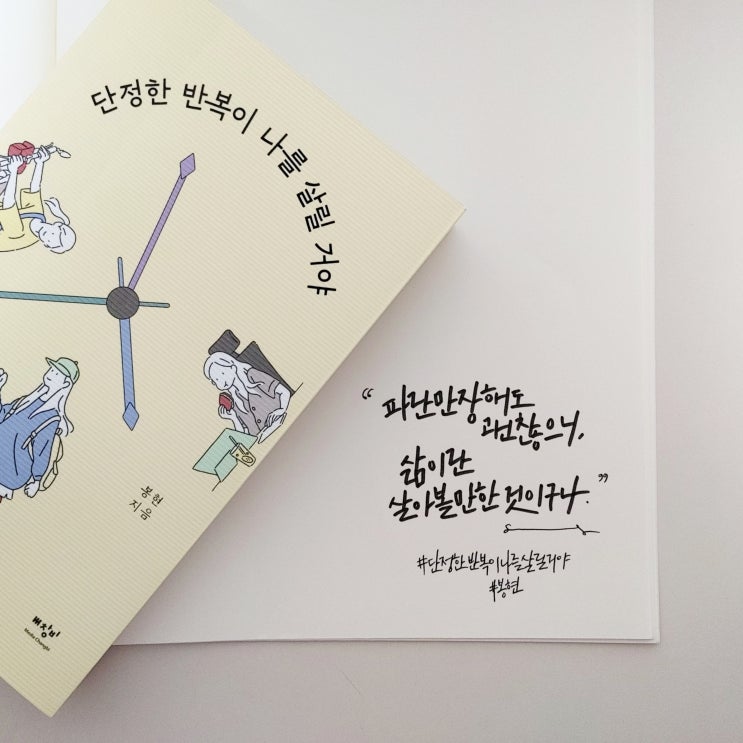 단정한 반복이 나를 살릴 거야
봉현
지음
미디어창비
Media Changbi
“파란만장해도
괜찮으니,
삶이란
살아볼만한 것이구나.”
#단정한반복이나를살릴거야
#봉현